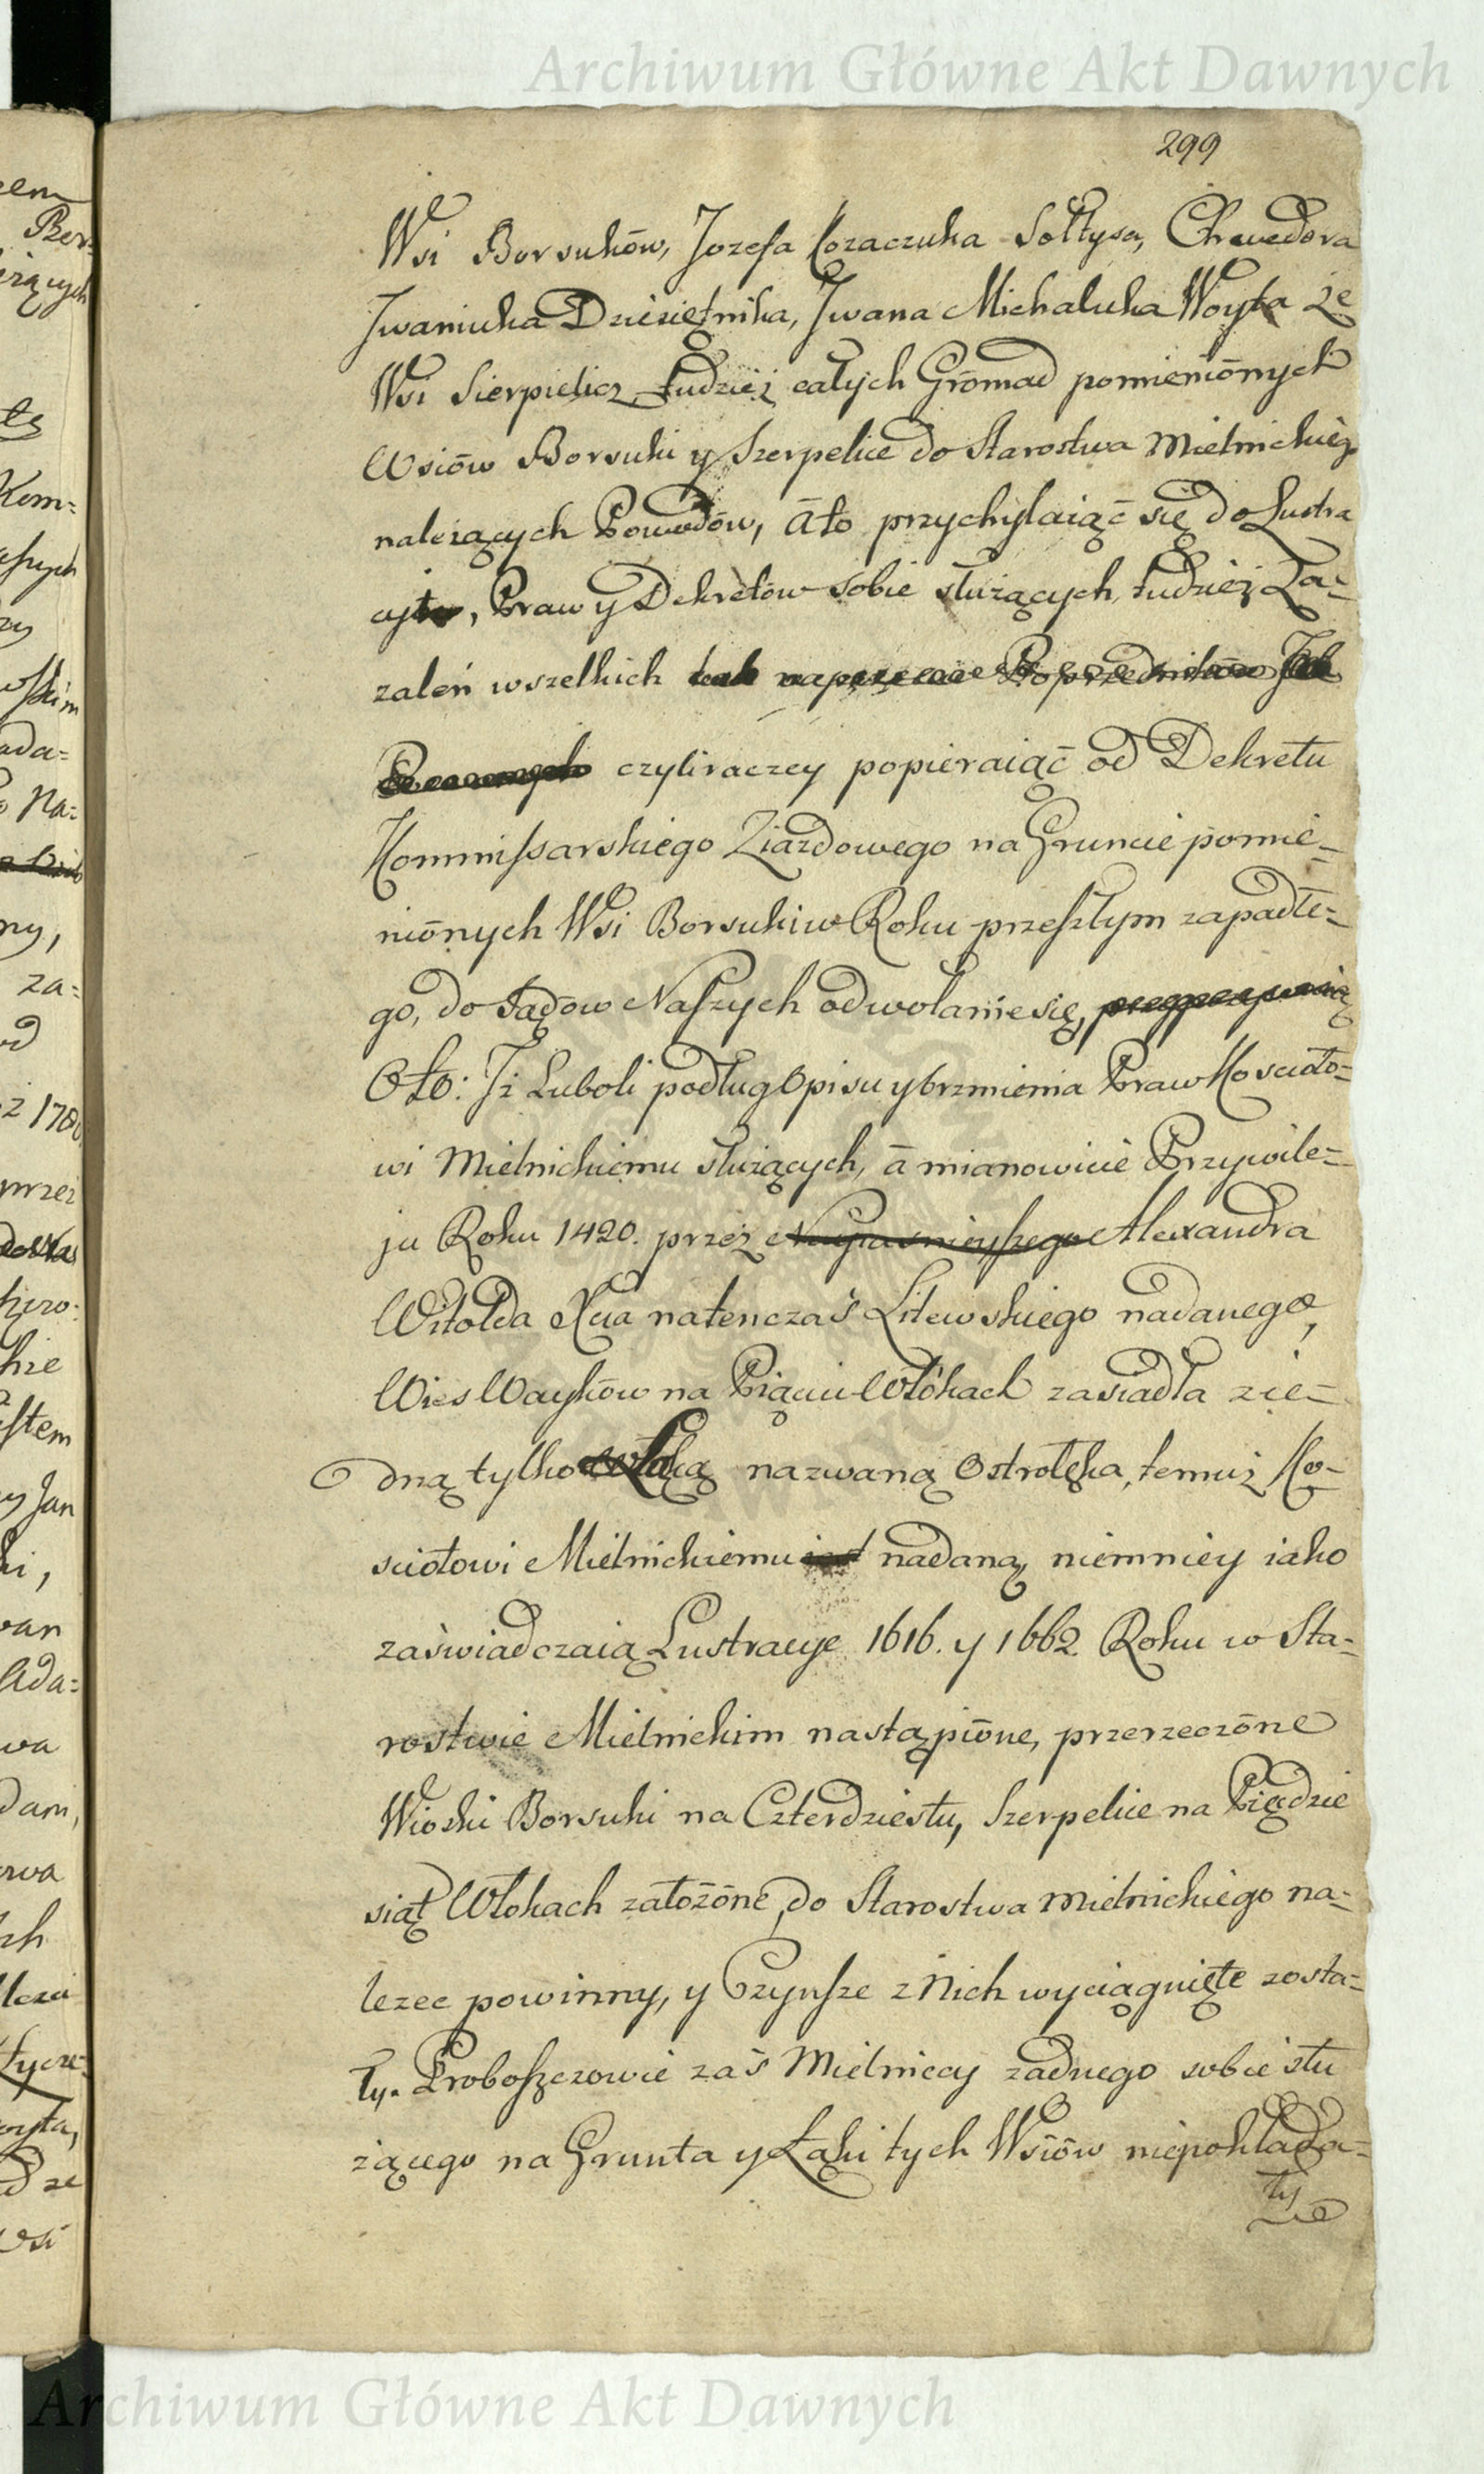 Archiwum Główne Akt Dawnych
299
Wsi Borsuków, Jozefa Kozaczuka Sołtysa, Chwedora
Jwaniuka Dziesiętnika, Jwana Michaluka Woyta Ze
Wsi Sierpielicz, tudzież całych Gromad pomieniōnych
Wsiōw Borsuki y Szerpelice do Starostwa Mielnickieg
należących Powodōw, āto przychylaiąć się do Lustra
cyi, Praw y Dekretōw sobie służących, tudzież Za-
zaleń wszelkich tak naprzeciw Poprzednikōw Jak
czyliraczey popieraiąć od Dekretu
Kommissarskiego Ziazdowego na Gruncie pomie-
niōnych Wsi Borsuki w Roku przeszłym zapadłe=
go, do Sądow Naszych odwołanie się,
Oto: Jż Luboli podług Opisu y brzmienia Praw Kosciōło=
wi Mielnickiemu służących, ā mianowicie Przywile=
ju Roku 1420. przéz Nayiasnieyszego Alexandra
Witolda Xcia natenczaś Litewskiego nadanego,
Wies Waykōw na Piąciu Włōkach zasiadła zie=
dną tylko Łąką nazwaną Ostrołęka, temuż Ko-
sciołowi Mielnickiemu iest nadaną, niemniey iako
zaświadczaią Lustracye 1616. y 1662 Roku w Sta=
rostwie Mielnickim nastąpiōne, przerzeczōne
Wioski Borsuki na Czterdziestu, Szerpelice na Piądzie
siąt Włokach załōżōne, do Starostwa Mielnickiego na=
lezec powinny, y Czynsze z Nich wyciągnięte zosta=
ły. Proboszczowie zaś Mielniccy zadnego sobie słu
żącego na Grunta y Łąki tych Wsiōw niepokłada=
ły
Archiwum Główne Akt Dawnych